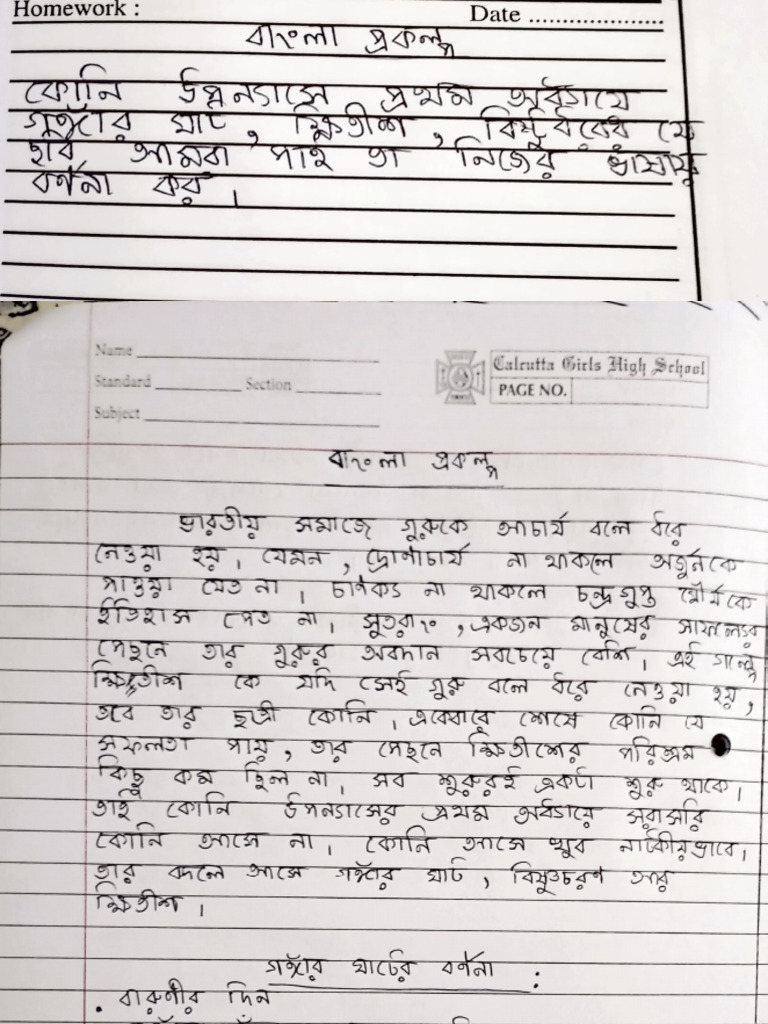 Homework :
Date ......................
বাংলা প্রকল্প
কোনি উপন্যাসে প্রথম অধ্যায়ে
গঙ্গার ঘাট, ক্ষিতীশ, বিষ্টুধরের যে
ছবি আমরা পাই তা নিজের ভাষায়
বর্ণনা কর।
Name
Calcutta Girls High School
Standard Section
PAGE NO.
Subject
বাংলা প্রকল্প
ভারতীয় সমাজে গুরুকে আচার্য বলে ধরে
নেওয়া হয়। যেমন, দ্রোণাচার্য না থাকলে অর্জুনকে
পাওয়া যেত না। চাণক্য না থাকলে চন্দ্রগুপ্ত মৌর্যকে
ইতিহাস পেত না। সুতরাং, একজন মানুষের সাফল্যের
পেছনে তার গুরুর অবদান সবচেয়ে বেশি। এই গল্পে
ক্ষিতীশ কে যদি সেই গুরু বলে ধরে নেওয়া হয়,
তবে তার ছাত্রী কোনি। একেবারে শেষে কোনি যে
সফলতা পায়, তার পেছনে ক্ষিতীশের পরিশ্রম
কিছু কম ছিল না। সব শুরুরই একটা শুরু থাকে।
তাই কোনি উপন্যাসের প্রথম অধ্যায়ে সরাসরি
কোনি আসে না। কোনি আসে খুব নাটকীয়ভাবে।
তার বদলে আসে গঙ্গার ঘাট, বিষ্টুচরণ আর
ক্ষিতীশ।
গঙ্গার ঘাটের বর্ণনা :
. বারুণীর দিন